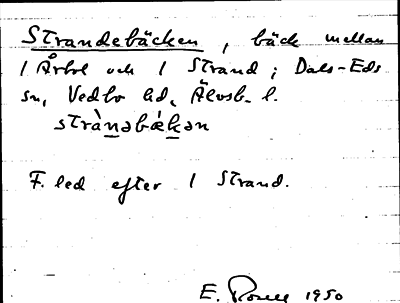 Strandebäcken, bäck mellan
1 Årbol och 1 Strand; Dals-Eds
sn, Vedbo hd, Älvsb. l.
strànəbákən
F. led efter 1 Strand.
E. 1950